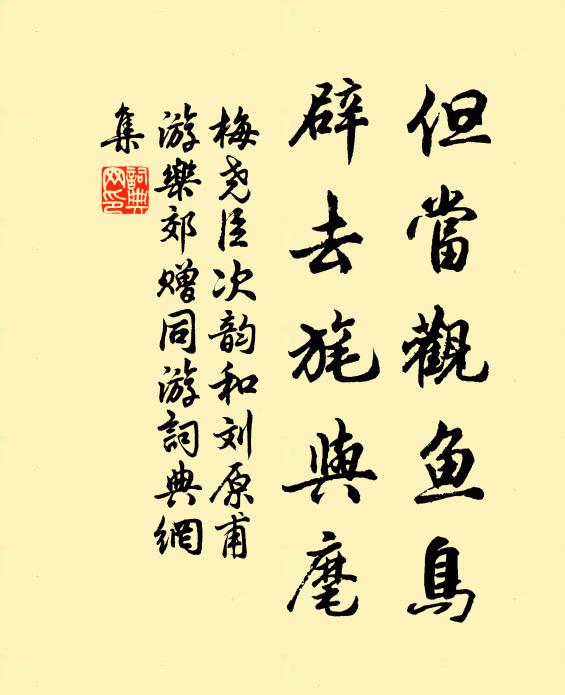 但當觀鱼鳥
辟去旄與麾
梅尧臣次韵和刘原甫
游樂郊赠同游詞典網
集
詞典
网印